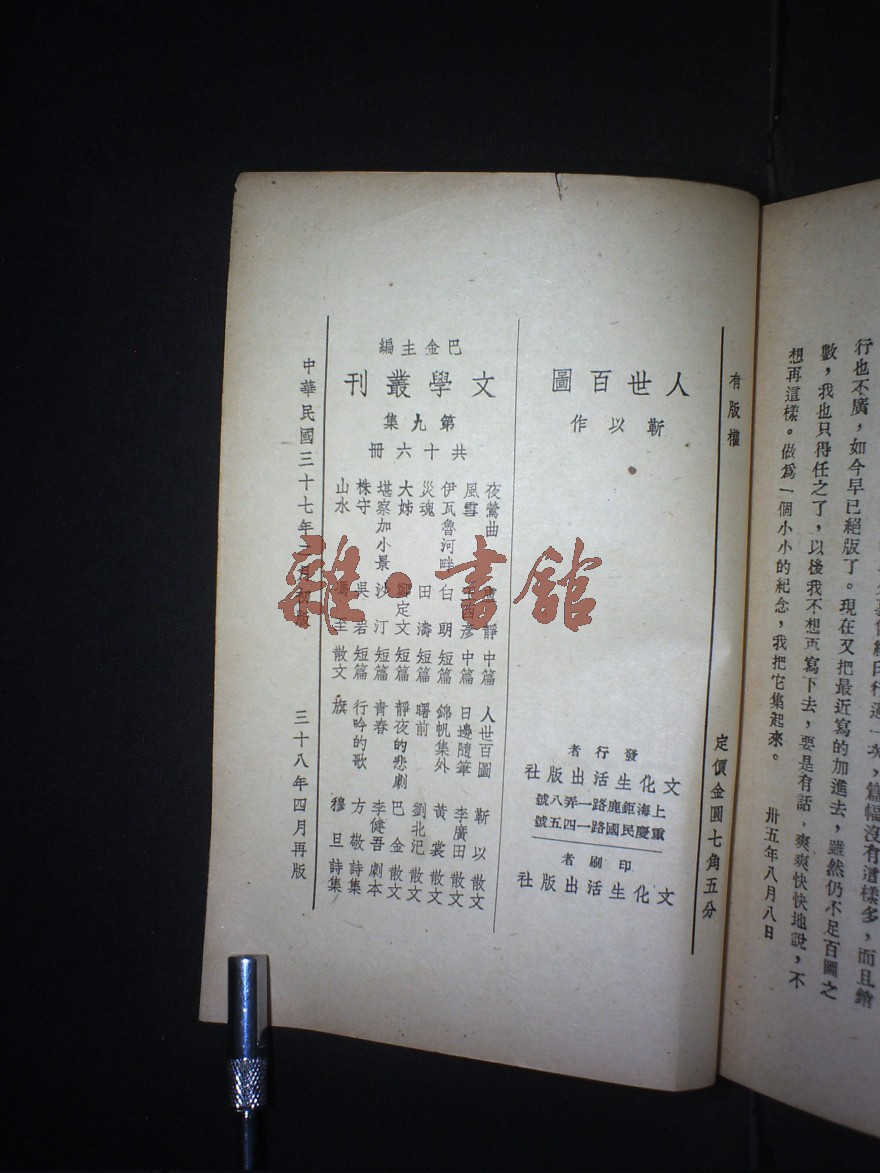 印行過一次，篇幅沒有這樣多，而且銷
行也不廣，如今早已絕版了。現在又把最近寫的加進去，雖然仍不足百圖之
數，我也只得任之了，以後我不想再寫下去，要是有話，爽爽快快地說，不
想再這樣。做爲一個小小的紀念，我把它集起來。
卅五年八月八日
有版權
定價金圓七角五分
人世百圖
靳以作
發行者
文化生活出版社
上海鉅鹿路一弄八號
重慶民國路一四五號
印刷者
文化生活出版社
巴金主編
文學叢刊
第九集
共十六冊
夜鶯曲 靜 中篇
風雪 西彥 中篇
伊瓦魯河畔 白朗 短篇
災魂 田濤 短篇
大姊 鄭定文 短篇
堪察加小景 沙汀 短篇
株守 吳岩 短篇
山水 馮至 散文
人世百圖 靳以 散文
日邊隨筆 李廣田 散文
錦帆集外 黃裳 散文
曙前 劉北汜 散文
靜夜的悲劇 巴金 散文
青春 李健吾 劇本
行吟的歌 方敬 詩集
旗 穆旦 詩集
中華民國三十七年二月初版
三十八年四月再版
雜·書館